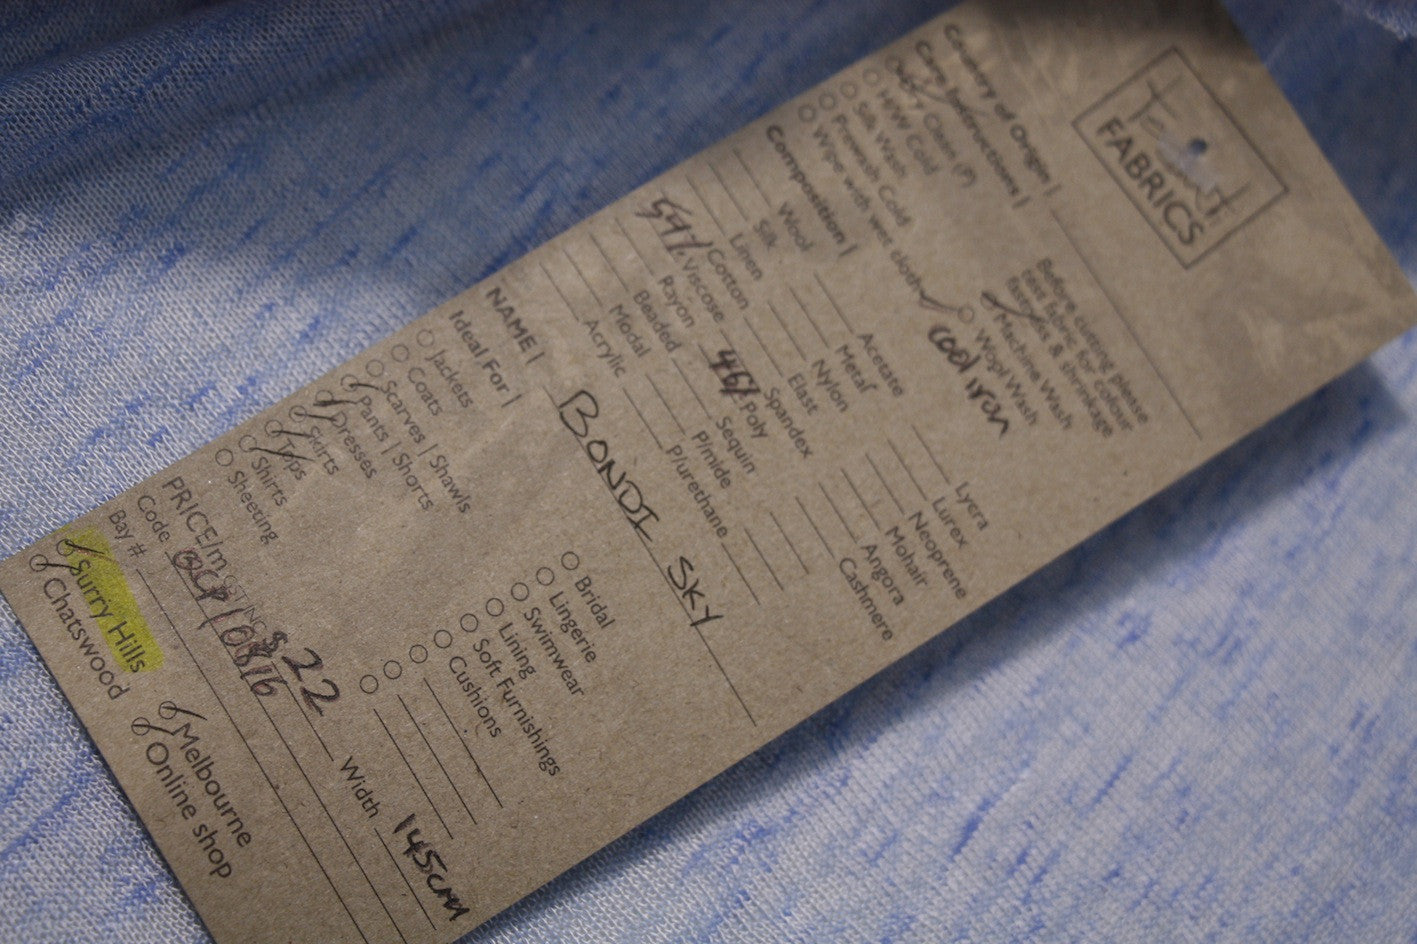 FABRICS
Country of Origin |
Care Instructions |
Dry Clean (P)
H/W Cold
Silk Wash
Prewash Cold
Wipe with wet cloth
Wool Wash
Machine Wash
cool iron
Before cutting please
test fabric for colour
fastness & shrinkage
Composition |
Wool
Silk
Linen
Cotton
54% Viscose
Rayon
Beaded
Modal
Acrylic
Acetate
Metal
Nylon
Elast
Spandex
46% Poly
Sequin
P/mide
P/urethane
Lycra
Lurex
Neoprene
Mohair
Angora
Cashmere
NAME | BONDI SKY
Ideal For |
Jackets
Coats
Scarves | Shawls
Pants | Shorts
Dresses
Skirts
Tops
Shirts
Sheeting
Bridal
Lingerie
Swimwear
Lining
Soft Furnishings
Cushions
PRICE/m $22
Width 145cm
Code
Bay #
Surry Hills
Chatswood
Melbourne
Online shop